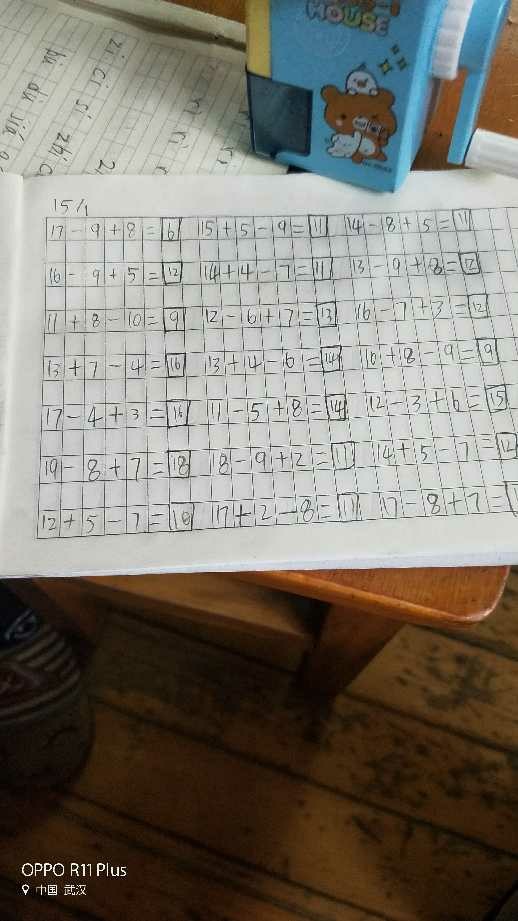 HOUSE
zi ci si zhi c
bu du
15 4
17-9+8=16 15+5-9=11 14-8+5=11
16-9+5=12 14+4-7=11 13-9+8=12
11+8-10=9 12-6+7=13 16-7+3=12
13+7-4=16 13+14-6=14 10+8-9=9
17-4+3=16 11-5+8=14 12-3+6=15
19-8+7=18 18-9+2=11 14+5-7=12
12+5-7=10 17+2-8=11 17-8+7=
OPPO R11 Plus
中国 武汉